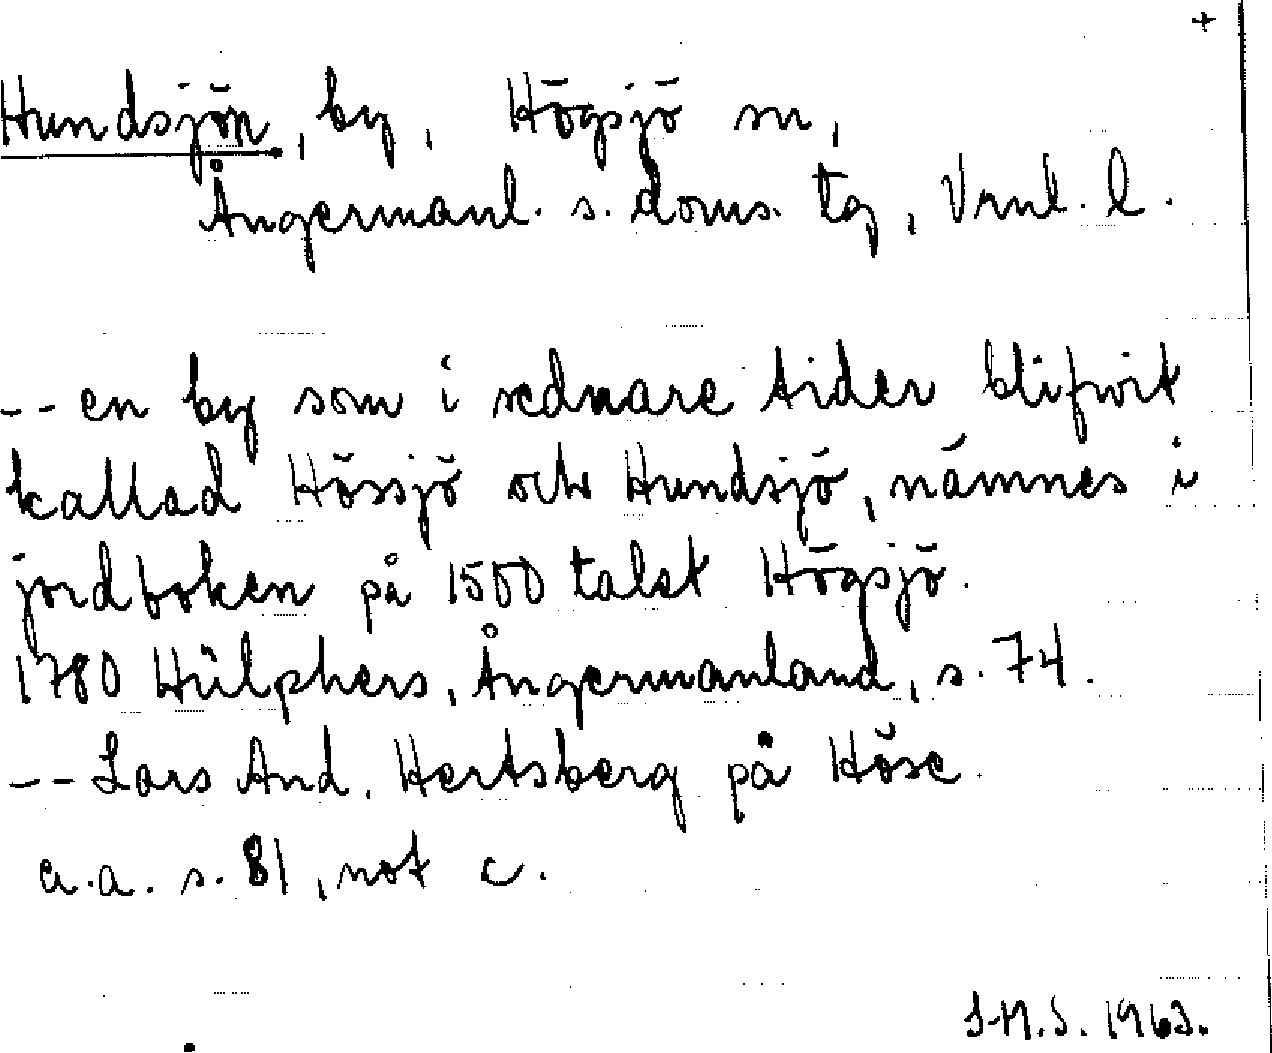 +
Hundsjön, by, Högsjö sn,
Ångermanl. s. doms. tg, Vrnl. l.
-- en by som i sednare tider blifwit
kallad Hössjö och Hundsjö, nämnes i
jordboken på 1500 talet Högsjö.
1780 Hülphers, Ångermanland, s. 74.
-- Lars And. Hertsberg på Höse
a.a. s. 81, not c.
1963.